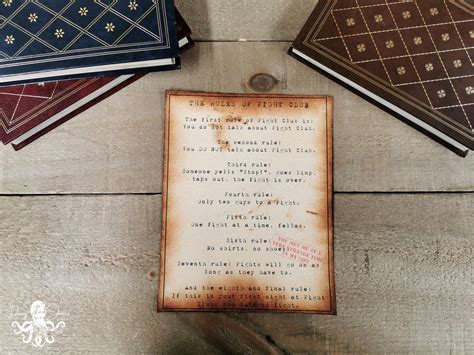 THE RULES OF FIGHT CLUB
The first rule of Fight Club is:
You do not talk about Fight Club.
The second rule:
You DO NOT talk about Fight Club.
Third rule:
Someone yells "Stop!", goes limp,
taps out, the fight is over.
Fourth rule:
Only two guys to a fight.
Fifth rule:
One fight at a time, fellas.
Sixth rule:
No shirts, no shoes.
YOU MET ME AT A
VERY STRANGE TIME
IN MY LIFE
Seventh rule: Fights will go on as
long as they have to.
And the eighth and final rule:
If this is your first night at Fight
Club, you have to fight.